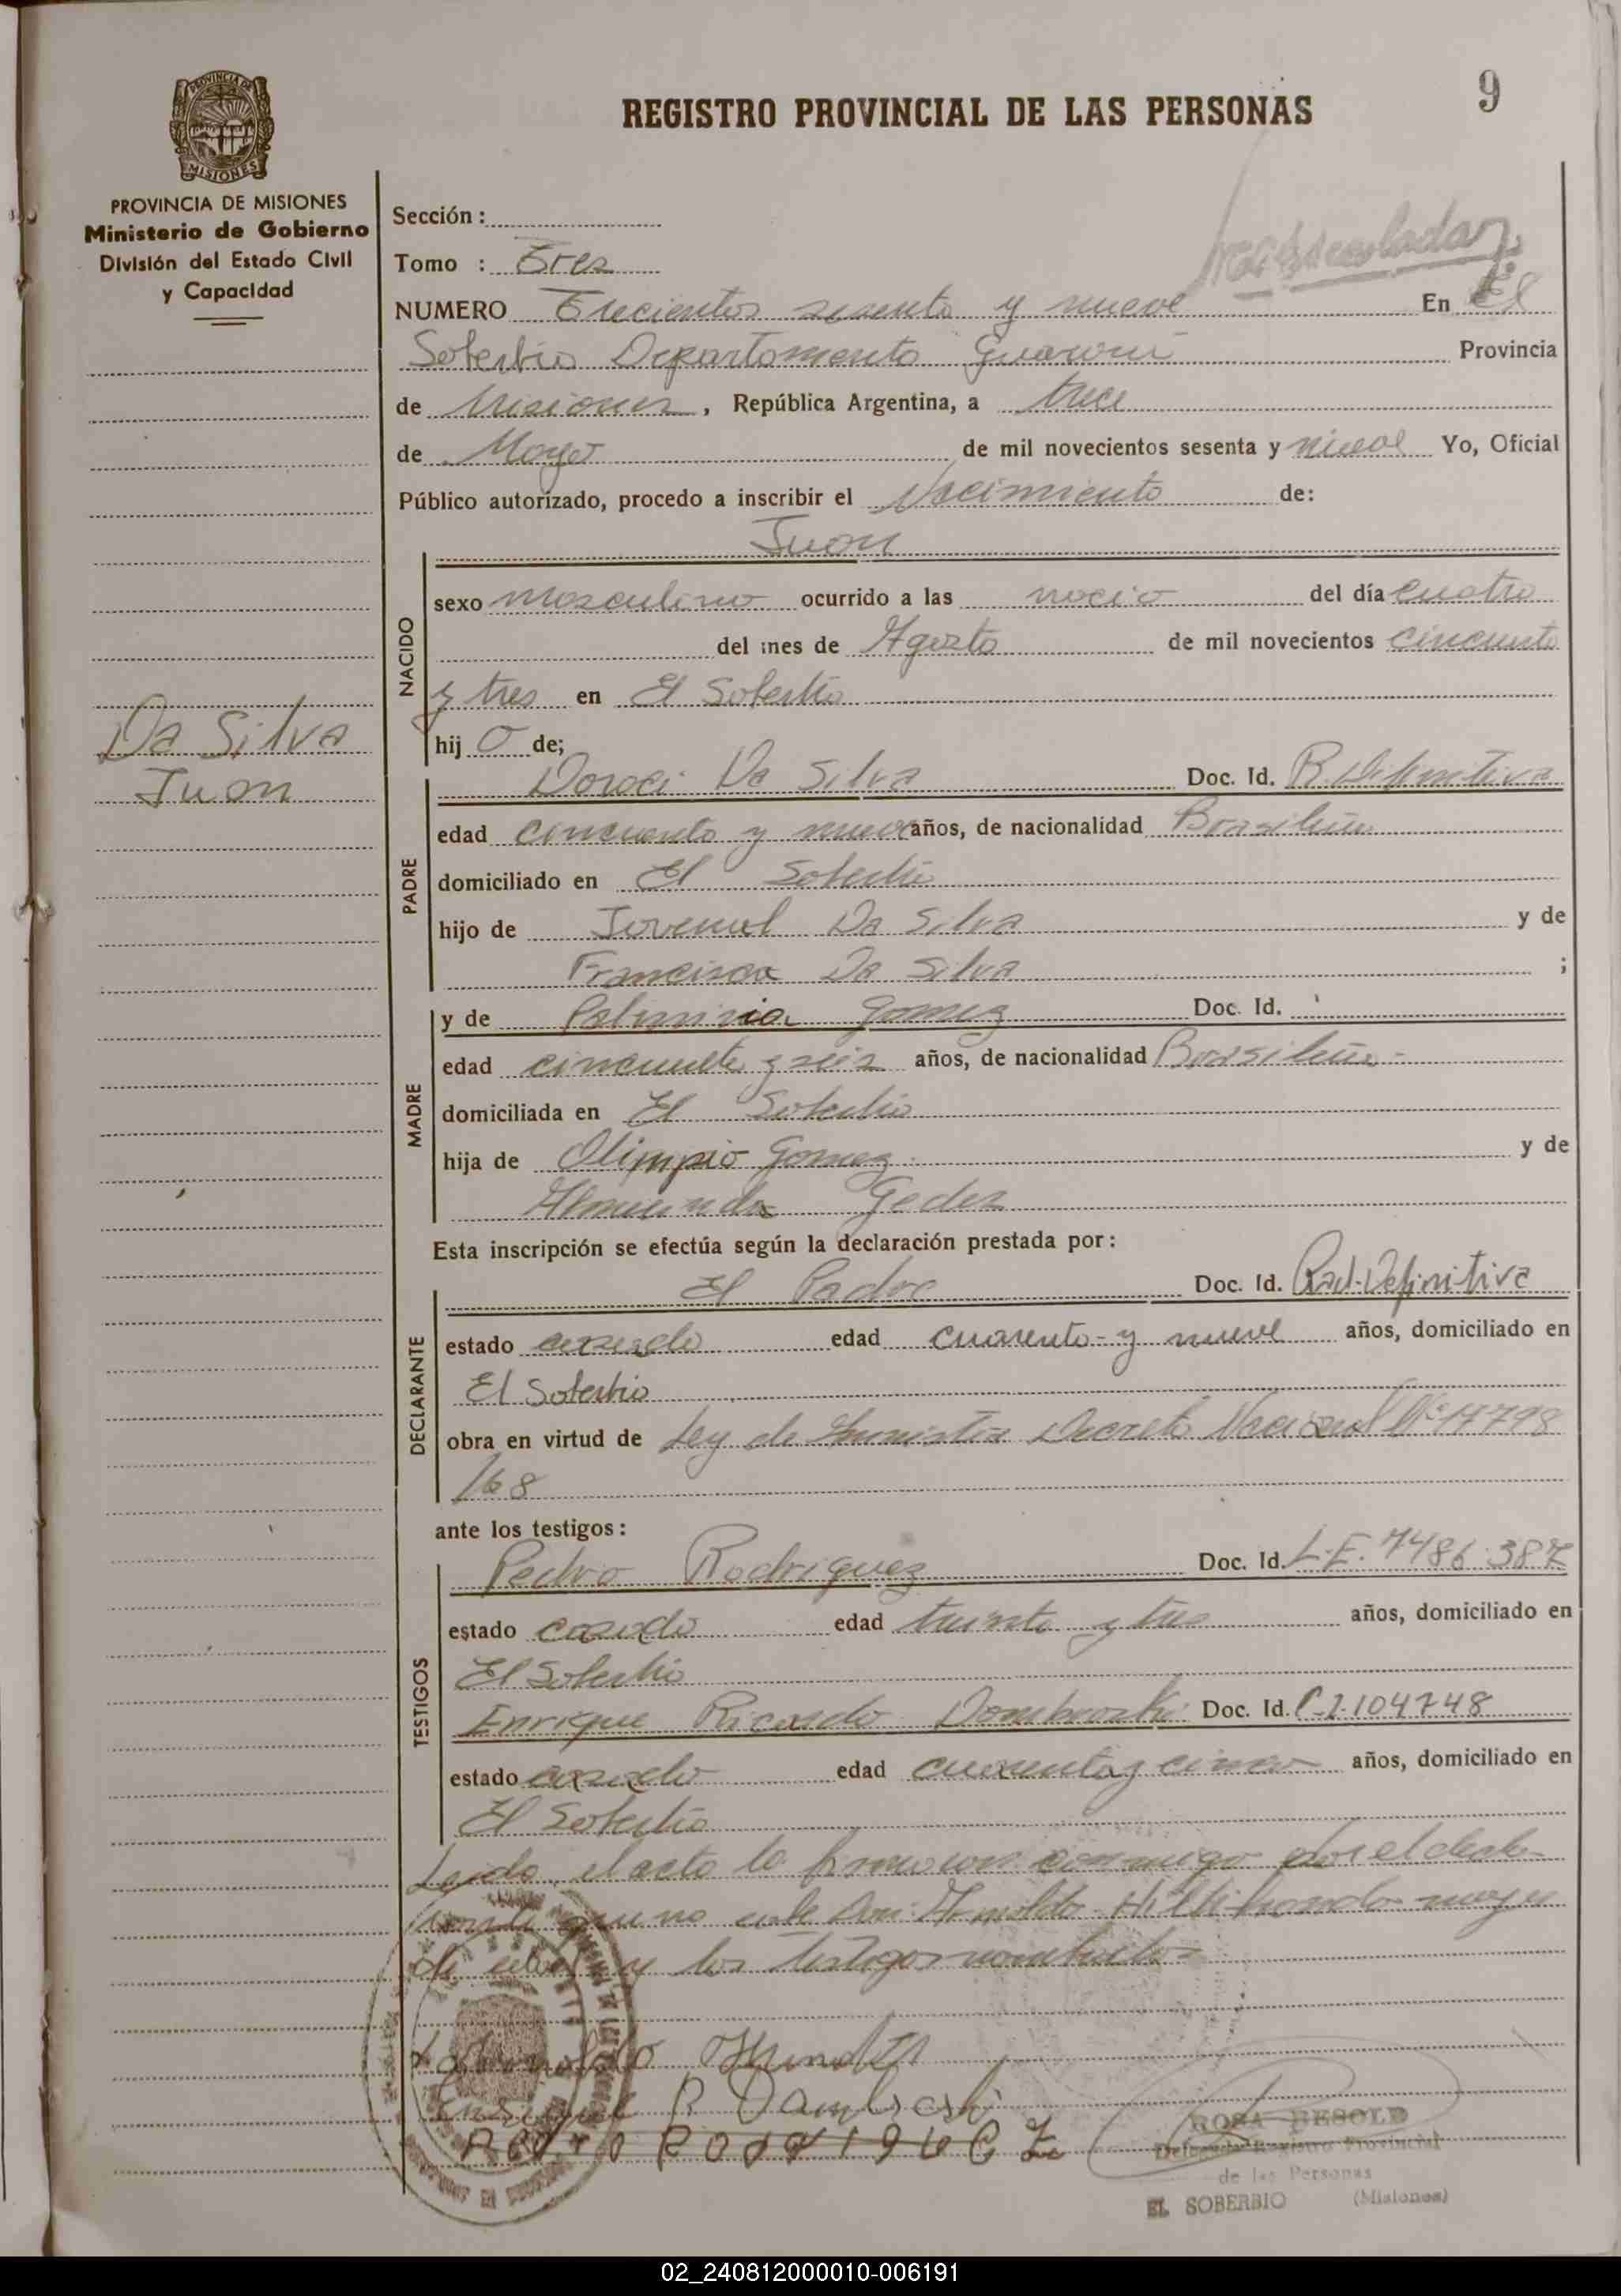 9
REGISTRO PROVINCIAL DE LAS PERSONAS
PROVINCIA DE
MISIONES
PROVINCIA DE MISIONES
Ministerio de Gobierno
División del Estado Civil
y Capacidad
Sección :
Tomo : Tres
NUMERO Trecientos sesenta y nueve En El
Soberbio Departamento Guaraní Provincia
de Misiones, República Argentina, a trece
de Mayo de mil novecientos sesenta y nueve Yo, Oficial
Público autorizado, procedo a inscribir el Nacimiento de:
Juan
NACIDO
sexo masculino ocurrido a las del día cuatro
del mes de Agosto de mil novecientos cincuenta
y tres en El Soberbio
hij o de;
Da Silva
Juan
PADRE
Doroci Da Silva Doc. Id. R. Difinitiva
edad cincuenta y nueve años, de nacionalidad Brasileña
domiciliado en El Soberbio
hijo de Jovenul Da Silva y de
Francisca Da Silva ;
MADRE
y de Gomez Doc. Id.
edad cincuenta y seis años, de nacionalidad Brasileña -
domiciliada en El Soberbio
hija de Olimpio Gomez y de
Gedez
Esta inscripción se efectúa según la declaración prestada por:
DECLARANTE
El Padre Doc. Id. Rad. Definitiva
estado casado edad cuarenta y nueve años, domiciliado en
El Soberbio
obra en virtud de Ley de Decreto Nacional Nº 17798
/68
ante los testigos:
TESTIGOS
Pedro Rodriguez Doc. Id. L.E. 7486.387
estado casado edad treinta y tres años, domiciliado en
El Soberbio
Enrique Ricardo Dombroski Doc. Id. C.I. 104748
estado casado edad cuarenta y cinco años, domiciliado en
El Soberbio
Leida el acta la firmaron conmigo por el decla-
rante que no sabe Don: Arnoldo mayor
de edad y los testigos nombrados
Enrique R Dambroski
ROSA BESOLD
Delegada Registro Provincial
de las Personas
EL SOBERBIO (Misiones)
02_240812000010-006191